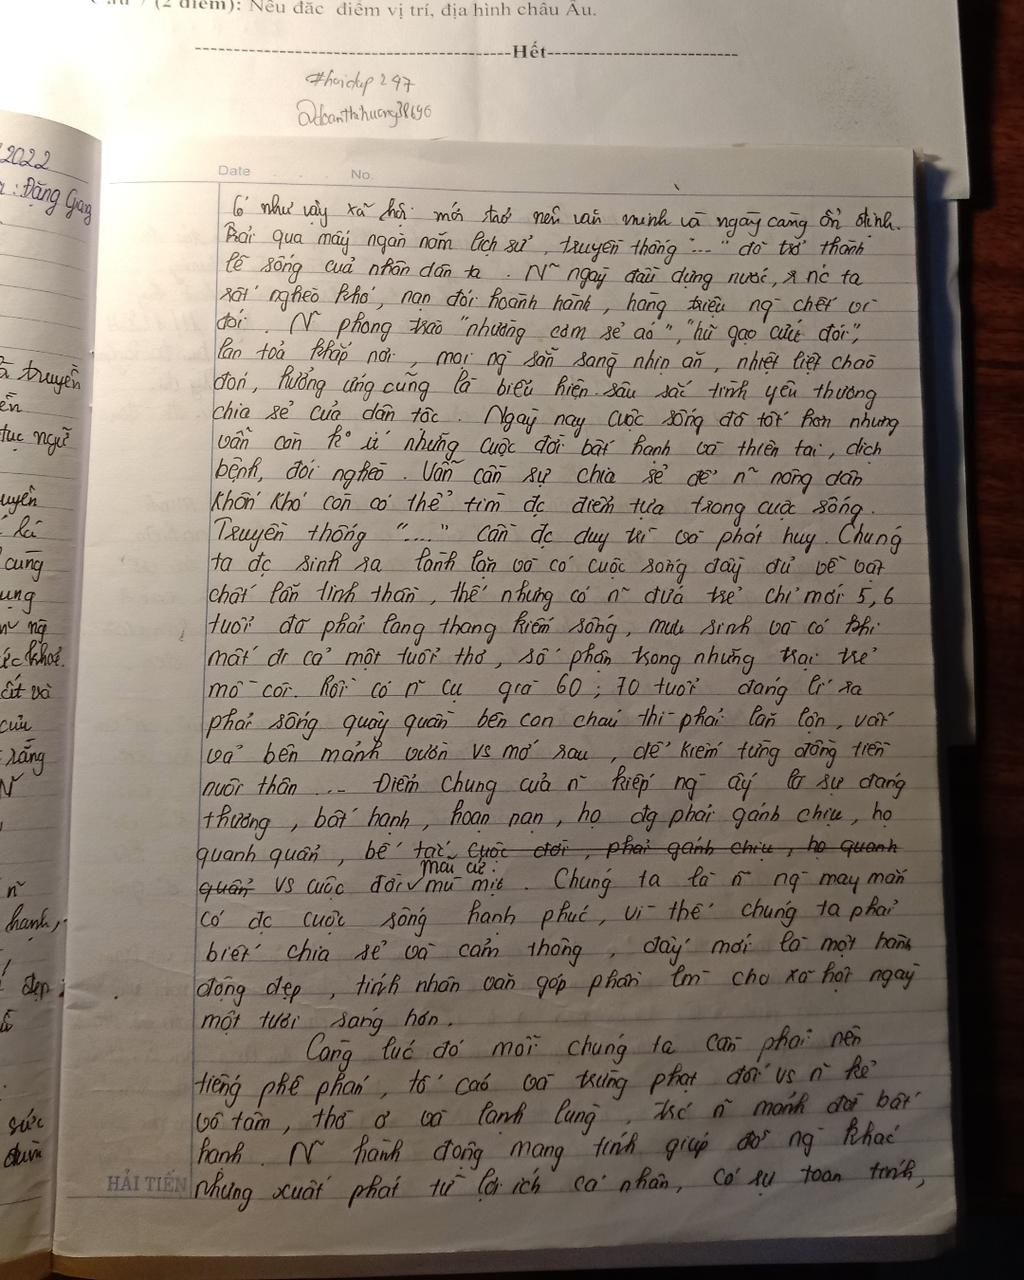 (2 điểm): Nêu đặc điểm vị trí, địa hình châu Âu.
Hết
#haidup247
@doanthihuong38696
2022
: Đặng Giang
truyền
tục ngữ
uyền
lá
cùng
ụng
ng
khoẻ.
cứu
rằng
N~
n~
hạnh,
đẹp
sức
Date No.
Có như vậy xã hội mới trở nên văn minh và ngày càng ổn định.
Trải qua mấy ngàn năm lịch sử, truyền thống "...." đã trở thành
lẽ sống của nhân dân ta. N~ ngày đầu dựng nước, nc ta
rất nghèo khó, nạn đói hoành hành, hàng triệu ng chết vì
đói. N~ phong trào "nhường cơm sẻ áo", "hũ gạo cứu đói",
lan toả khắp nơi, mọi ng sẵn sàng nhịn ăn, nhiệt liệt chào
đón, hưởng ứng cũng là biểu hiện sâu sắc tình yêu thương
chia sẻ của dân tộc. Ngày nay cuộc sống đã tốt hơn nhưng
vẫn còn k° ít những cuộc đời bất hạnh và thiên tai, dịch
bệnh, đói nghèo. Vẫn cần sự chia sẻ để n~ nông dân
khốn khó còn có thể tìm đc điểm tựa trong cuộc sống.
Truyền thống "...." cần đc duy trì và phát huy. Chúng
ta đc sinh ra lành lặn và có cuộc sống đầy đủ về vật
chất lẫn tinh thần, thế nhưng có n~ đứa trẻ chỉ mới 5, 6
tuổi đã phải lang thang kiếm sống, mưu sinh và có khi
mất đi cả một tuổi thơ, số phận trong những trại trẻ
mồ côi. Rồi có n~ cụ già 60; 70 tuổi đáng lí ra
phải sống quây quần bên con cháu thì phải lăn lộn, vất
vả bên mảnh vườn vs mớ rau, để kiếm từng đồng tiền
nuôi thân ... Điểm chung của n~ kiếp ng ấy là sự đáng
thương, bất hạnh, hoạn nạn, họ đg phải gánh chịu, họ
quanh quẩn, bế tắc cuộc đời, phải gánh chịu, họ quanh
quẩn vs cuộc đời mãi cứ mù mịt. Chúng ta là n~ ng may mắn
có đc cuộc sống hạnh phúc, vì thế chúng ta phải
biết chia sẻ và cảm thông, đấy mới là một hành
động đẹp, tính nhân văn góp phần lm cho xã hội ngày
một tươi sáng hơn.
Cùng lúc đó mỗi chúng ta cần phải nên
tiếng phê phán, tố cáo và trừng phạt đối vs n~ kẻ
vô tâm, thờ ơ và lạnh lùng, trc n~ mảnh đời bất
hạnh. N~ hành động mang tính giúp đỡ ng khác
nhưng xuất phát từ lợi ích cá nhân, có sự toan tính,
HẢI TIẾN